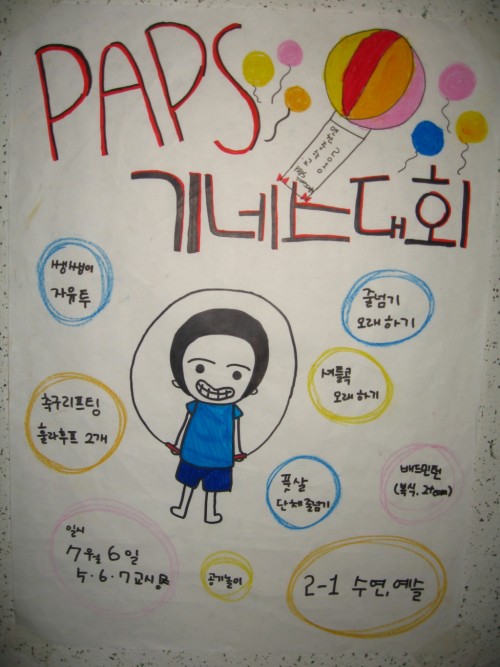 PAPS
2010
기네스대회
쌩쌩이
자유투
줄넘기
오래하기
셔틀콕
오래하기
축구리프팅
훌라후프 2개
배드민턴
(복식, 2team)
풋살
단체줄넘기
일시
7월 6일
5·6·7교시
공기놀이
2-1 수연,예슬